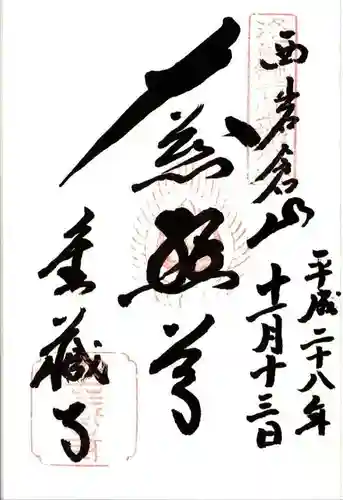 西岩倉山
平成二十八年
十一月十三日
大慈悲尊
金蔵寺